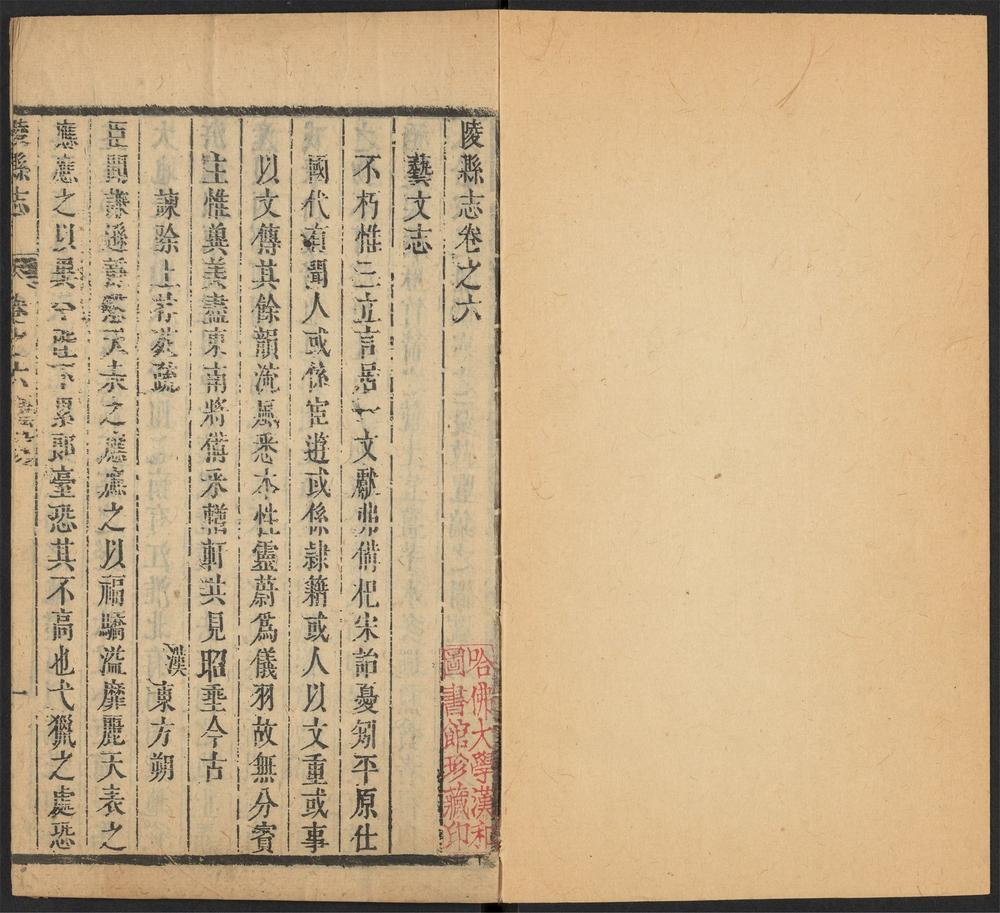 陵縣志卷之六
藝文志
不朽惟三立言居一文獻弗備杞宋詒憂矧平原仕
國代有聞人或係宦遊或係隸籍或人以文重或事
以文傳其餘韻流風悉本性靈蔚為儀羽故無分賓
主惟奠美盡東南將備采輶軒共見昭垂今古
諫除上林苑疏
漢東方朔
臣聞謙遜靜愨天表之應應之以福驕溢靡麗天表之
應應之以異今陛下累郎臺恐其不高也弋獵之處恐
陵縣志
卷之六
一
哈佛大學漢和
圖書館珍藏印